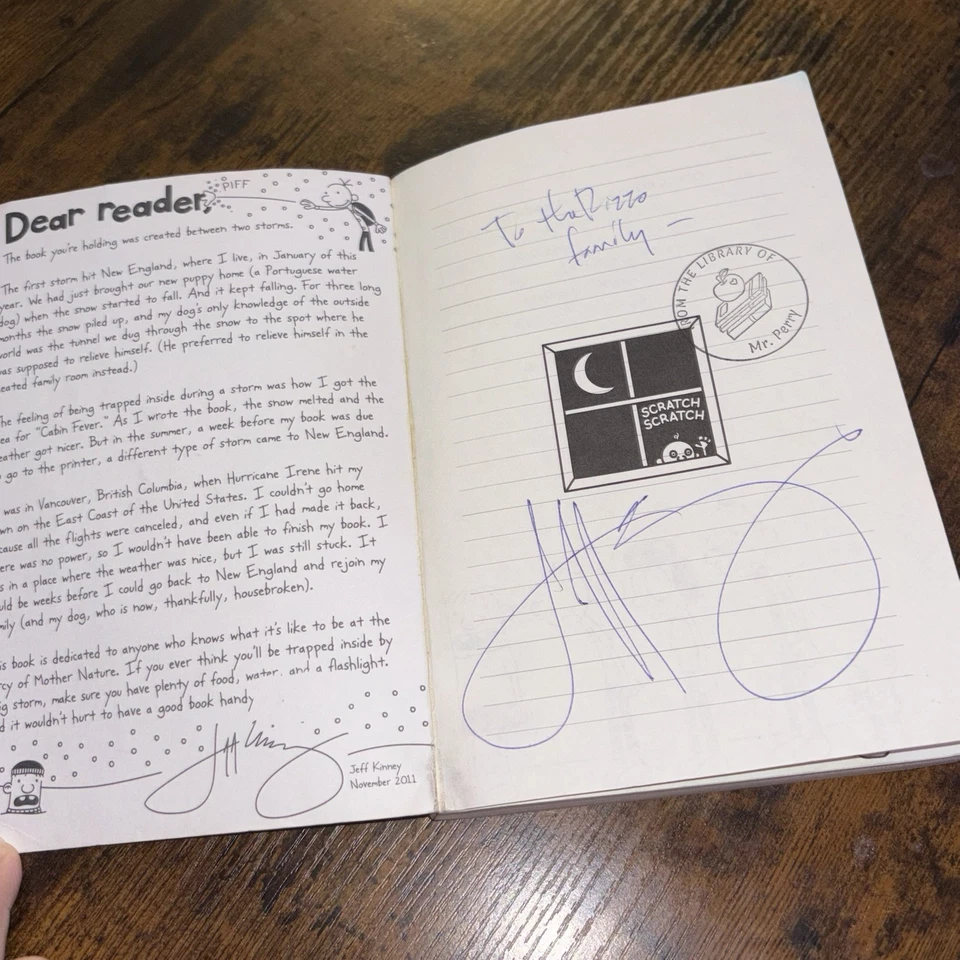 Dear reader,
PIFF
The book you're holding was created between two storms.
The first storm hit New England, where I live, in January of this
year. We had just brought our new puppy home (a Portuguese water
dog) when the snow started to fall. And it kept falling. For three long
months the snow piled up, and my dog's only knowledge of the outside
world was the tunnel we dug through the snow to the spot where he
was supposed to relieve himself. (He preferred to relieve himself in the
eated family room instead.)
he feeling of being trapped inside during a storm was how I got the
ea for "Cabin Fever." As I wrote the book, the snow melted and the
eather got nicer. But in the summer, a week before my book was due
go to the printer, a different type of storm came to New England.
was in Vancouver, British Columbia, when Hurricane Irene hit my
wn on the East Coast of the United States. I couldn't go home
cause all the flights were canceled, and even if I had made it back,
ere was no power, so I wouldn't have been able to finish my book. I
s in a place where the weather was nice, but I was still stuck. It
uld be weeks before I could go back to New England and rejoin my
mily (and my dog, who is now, thankfully, housebroken).
is book is dedicated to anyone who knows what it's like to be at the
rcy of Mother Nature. If you ever think you'll be trapped inside by
ig storm, make sure you have plenty of food, water, and a flashlight.
d it wouldn't hurt to have a good book handy
Jeff Kinney
Jeff Kinney
November 2011
To the Rizzo
family –
FROM THE LIBRARY OF
Mr. Perry
SCRATCH
SCRATCH